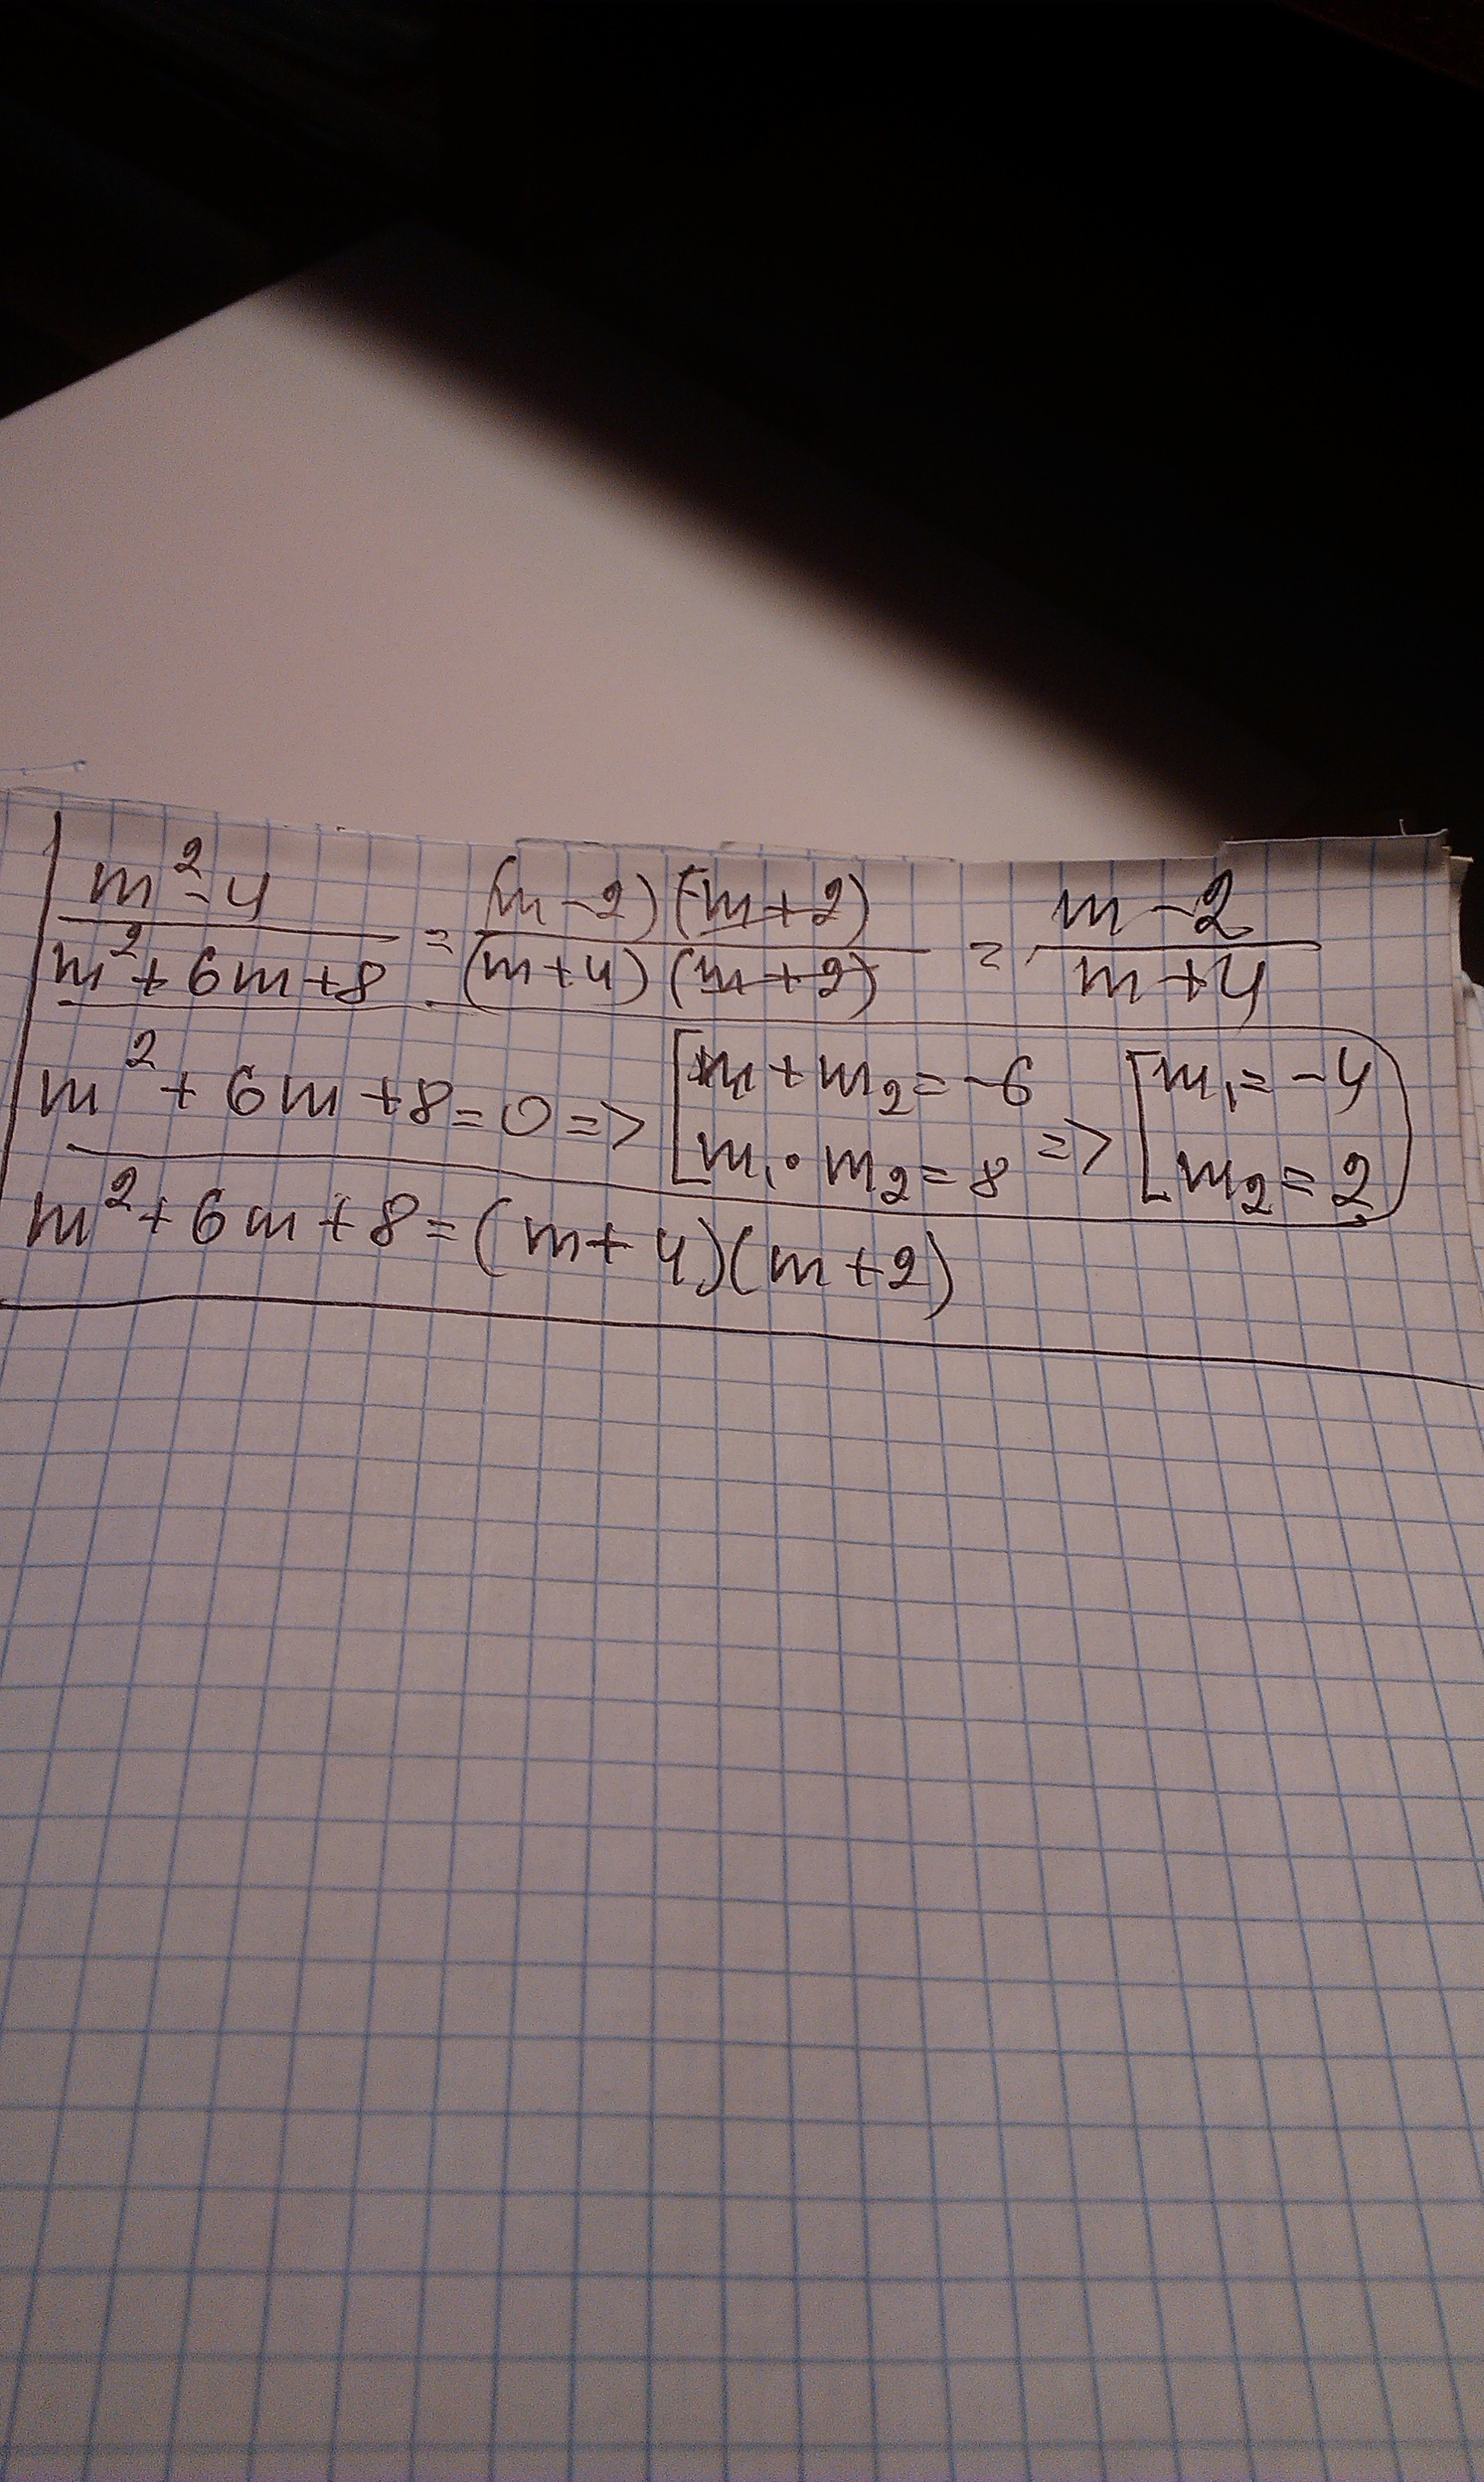 (m²-4)/(m²+6m+8) = ((m-2)(m+2))/((m+4)(m+2)) = (m-2)/(m+4)
m²+6m+8=0 => [m₁+m₂=-6 => [m₁=-4
[m₁·m₂=8 [m₂=2
m²+6m+8=(m+4)(m+2)